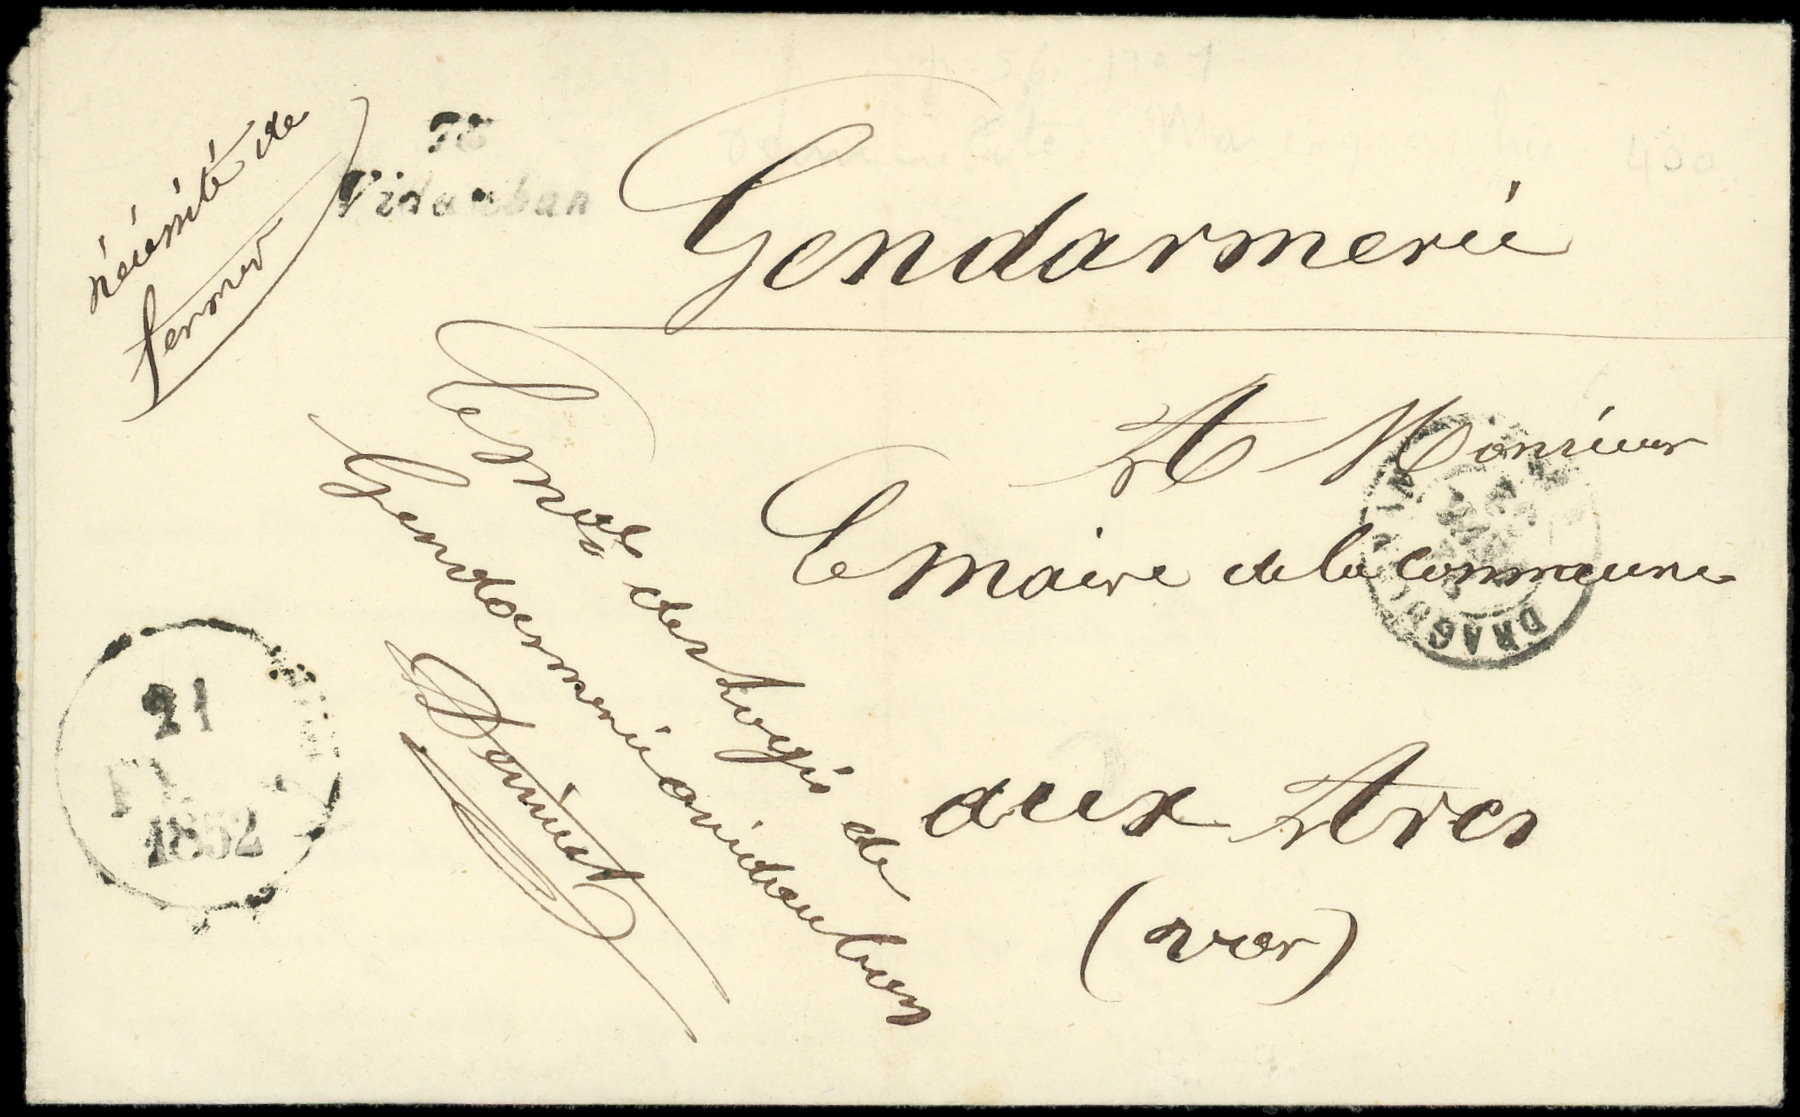 nécessité de
fermer
78
Vidauban
Gendarmerie
A Monsieur
Le maire de la commune
aux Arcs
(var)
Le Mal des Logis de
Gendarmerie à vidauban
21
1852
DRAGUIGNAN